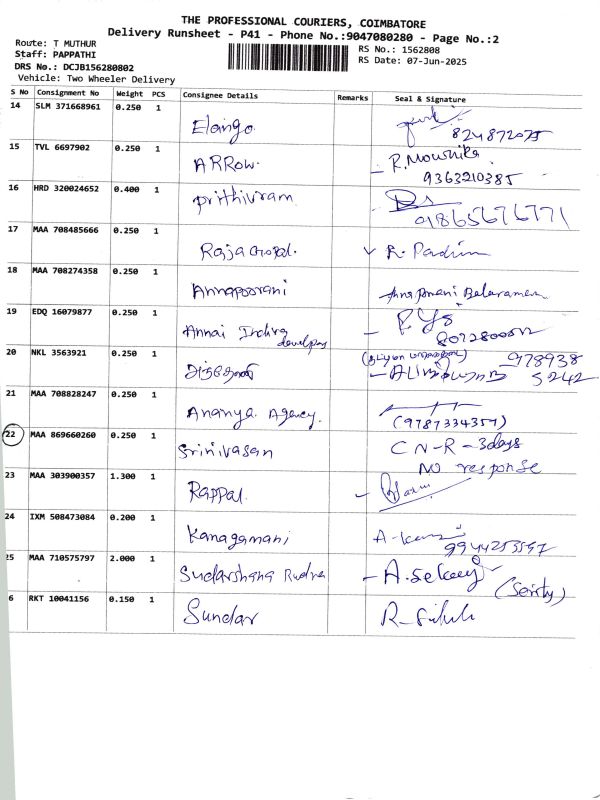 THE PROFESSIONAL COURIERS, COIMBATORE
Delivery Runsheet - P41 - Phone No.:9047080280 - Page No.:2
Route: T MUTHUR
Staff: PAPPATHI
DRS No.: DCJB156280802
Vehicle: Two Wheeler Delivery
RS No.: 1562808
RS Date: 07-Jun-2025
S No Consignment No Weight PCS Consignee Details Remarks Seal & Signature
14 SLM 371668961 0.250 1
Elango
824872075
15 TVL 6697902 0.250 1
ARROW
R. Mounika
9363210385
16 HRD 320024652 0.400 1
prithivram
01865676771
17 MAA 708485666 0.250 1
Rajagopal
18 MAA 708274358 0.250 1
Annapoorani
19 EDQ 16079877 0.250 1
Annai Indira
20 NKL 3563921 0.250 1
978938
5242
21 MAA 708828247 0.250 1
Ananya Agency
(9787334357)
22 MAA 869660260 0.250 1
Srinivasan
CN-R-3days
NO response
23 MAA 303900357 1.300 1
Rappal
24 IXM 508473084 0.200 1
Kanagamani
25 MAA 710575797 2.000 1
Sudarshana Rudra
6 RKT 10041156 0.150 1
Sundar